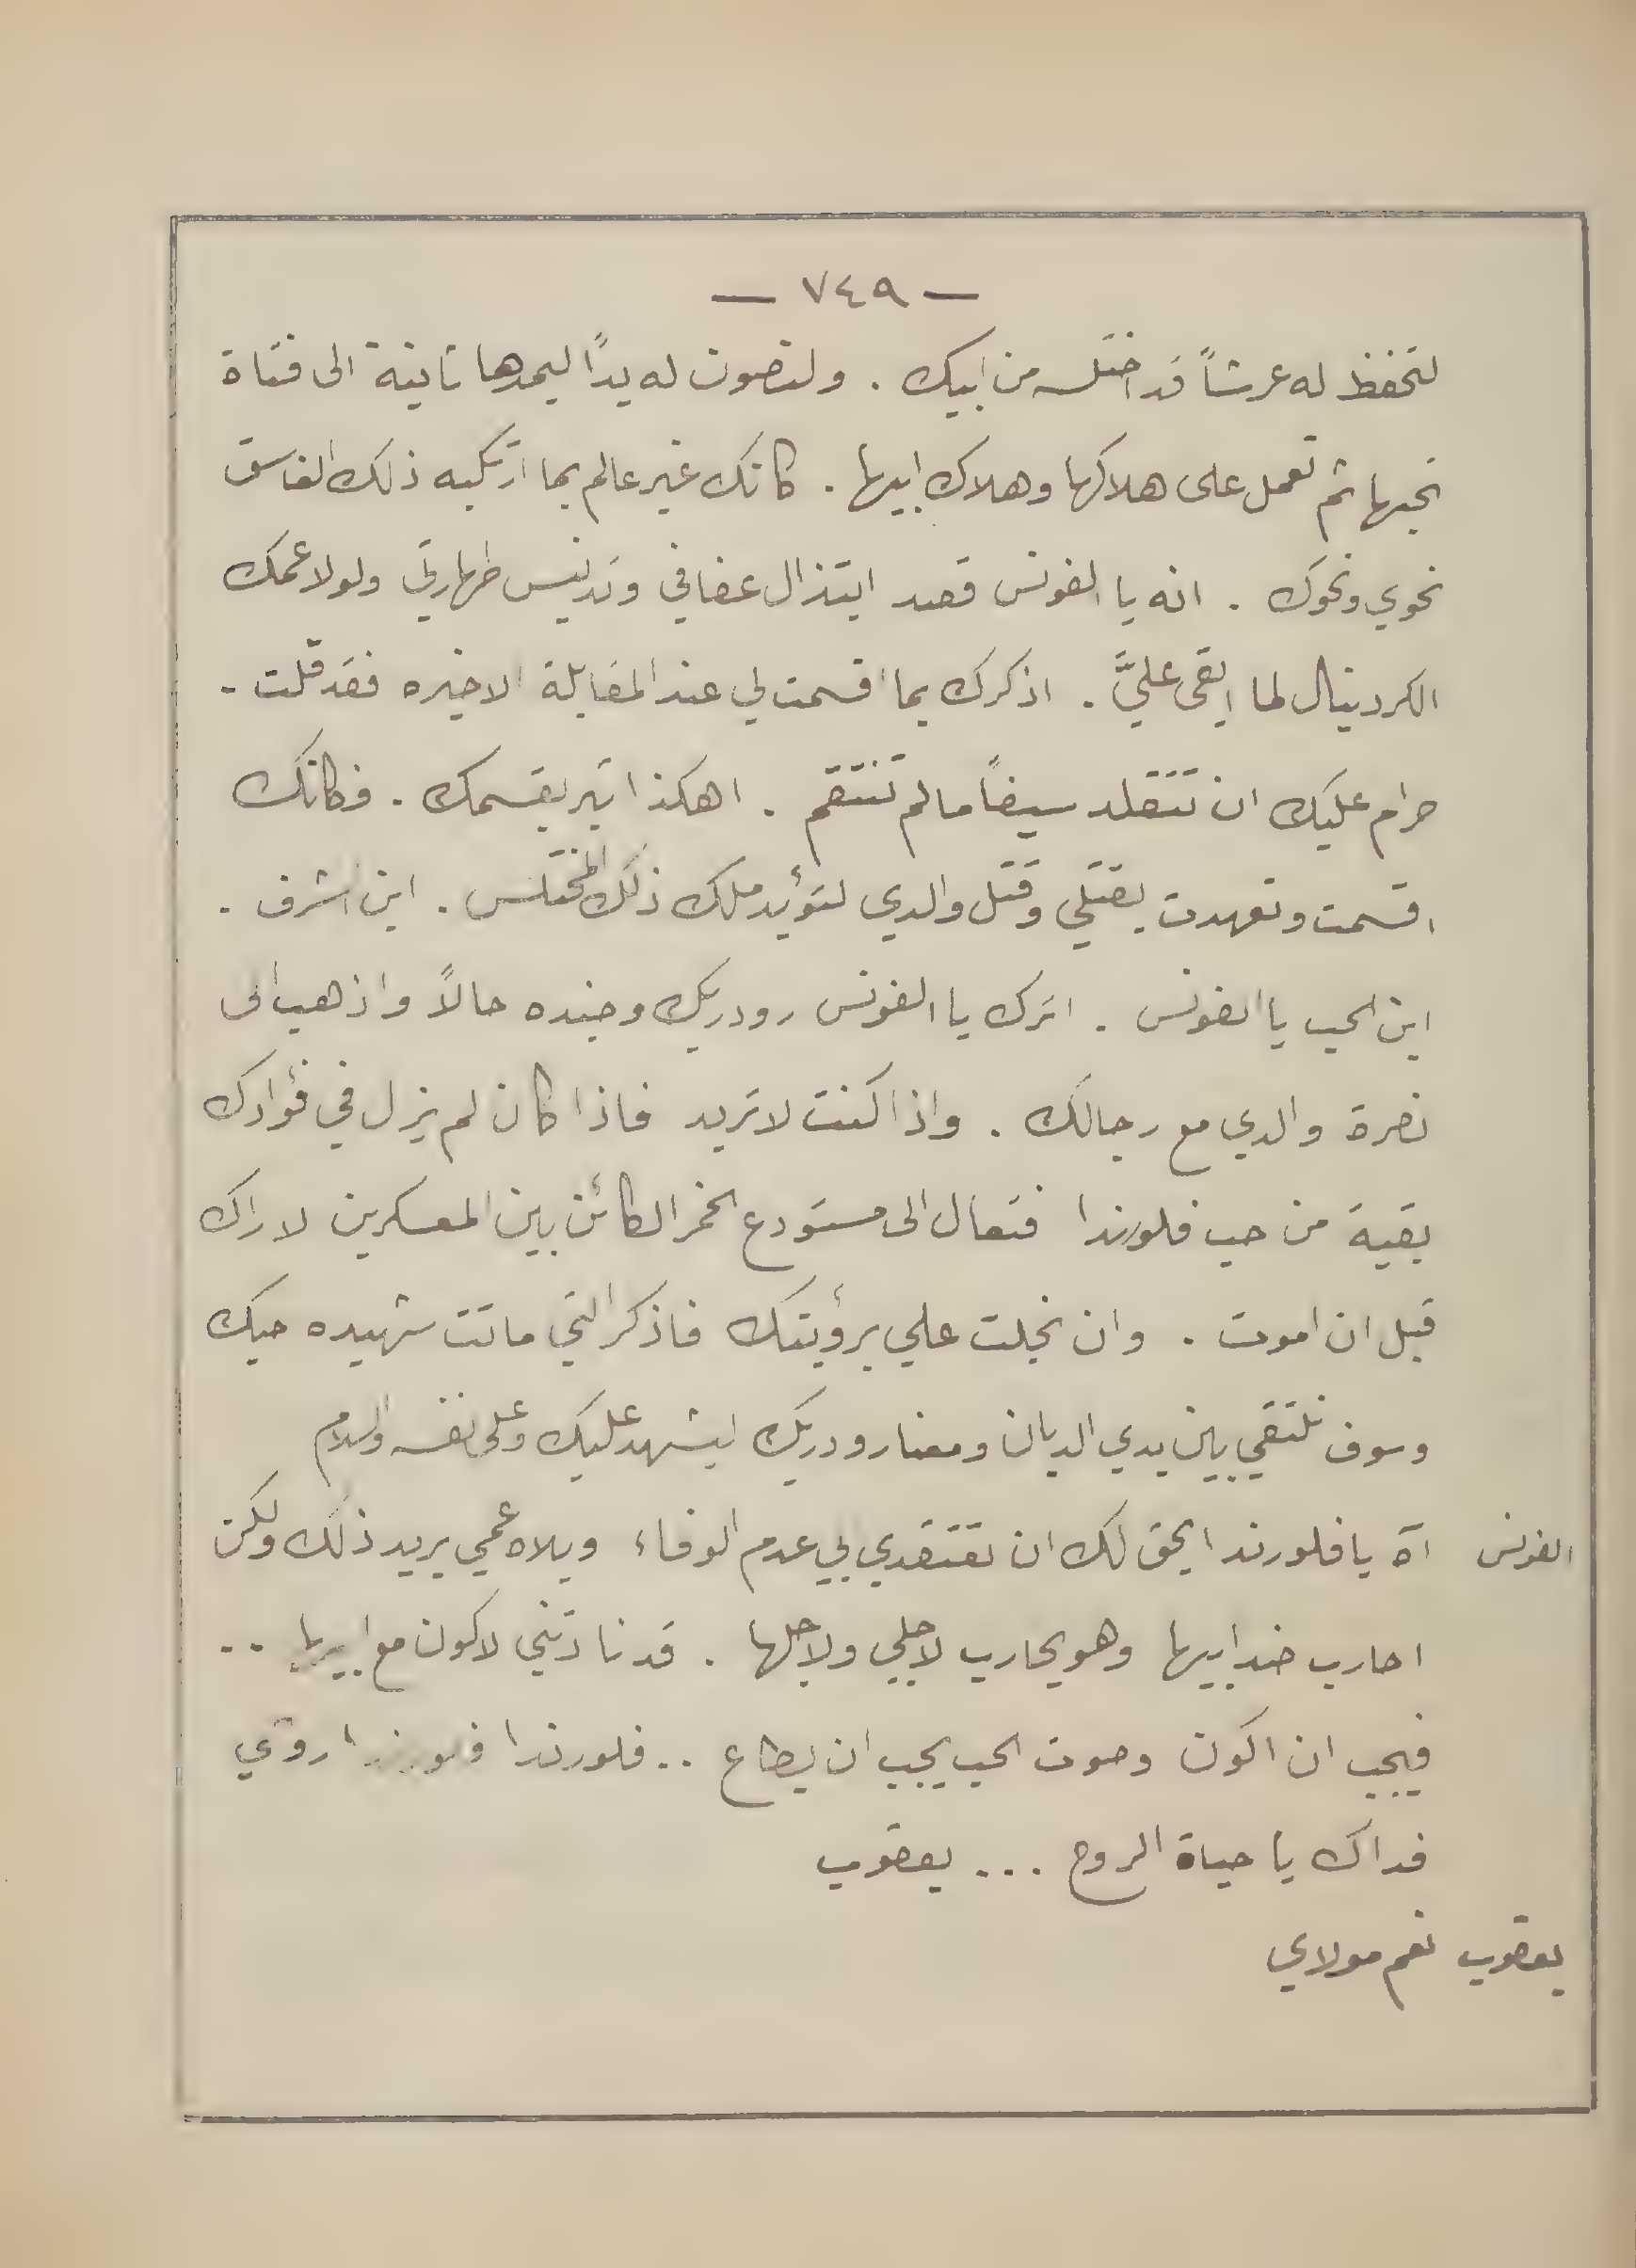 — ٧٤٩ —
لتحفظ له عرشاً قد اختلسه من ابيك . ولتصون له يدًا ليمدها ثانية الى فتاة
تحبها ثم تعمل على هلاكها وهلاك ابيها . كانك غير عالم بما ارتكبه ذلك الفاسق
نحوي ونحوك . انه يا الفونس قصد ابتذال عفافي وتدنيس طهارتي ولولا عمك
الكردينال لما ابقى عليَّ . اذكرك بما اقسمت لي عند المقابلة الاخيره فقد قلت -
حرام عليك ان تتقلد سيفاً ما لم تنتقم . اهكذا تبر بقسمك . فكانك
اقسمت وتعهدت بقتلي وقتل والدي لتؤيد ملك ذلك المختلس . اين الشرف .
اين الحب يا الفونس . اترك يا الفونس رودريك وجنده حالاً واذهب الى
نصرة والدي مع رجالك . واذا كنت لا تريد فاذا كان لم يزل في فؤادك
بقية من حب فلورندا فتعال الى مستودع الخمر الكائن بين المعسكرين لاراك
قبل ان اموت . وان بخلت علي برؤيتك فاذكر التي ماتت شهيده حبك
وسوف نلتقي بين يدي الديان ومعنا رودريك ليشهد عليك وعلى نفسه والسلام
الفونس آه يا فلورندا ايحق لك ان تعتقدي بي عدم الوفاء ويلاه عمي يريد ذلك ولكن
احارب ضد ابيها وهو يحارب لاجلي ولاجلها . قد نادتني لاكون مع ابيها ..
فيجب ان اكون وصوت الحب يجب ان يطاع .. فلورندا فلورندا روحي
فداك يا حياة الروح ... يعقوب
يعقوب نعم مولاي